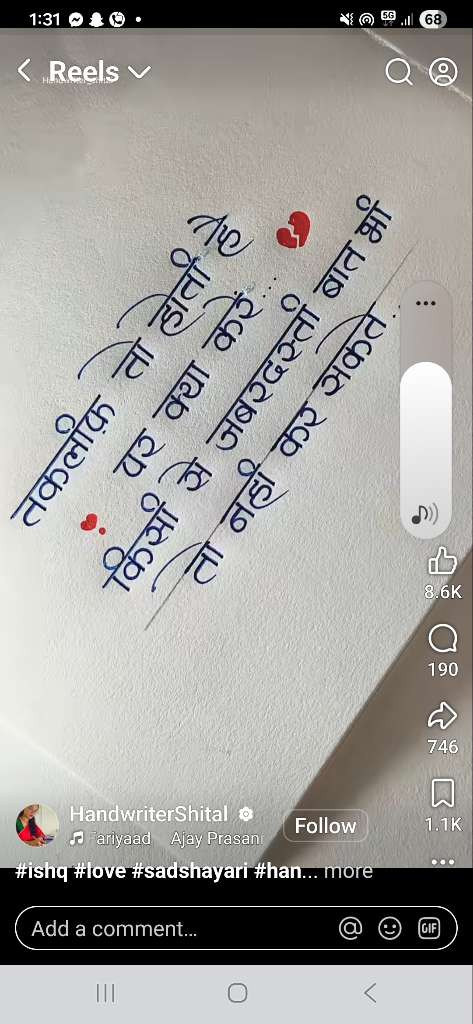 1:31
5G
68
Reels
तकलीफ़ तो होती है
पर क्या करे...
किसी से जबरदस्ती बात भी
तो नहीं कर सकते..
8.6K
190
746
1.1K
HandwriterShital
Fariyaad Ajay Prasann
Follow
#ishq #love #sadshayari #han... more
Add a comment...
GIF